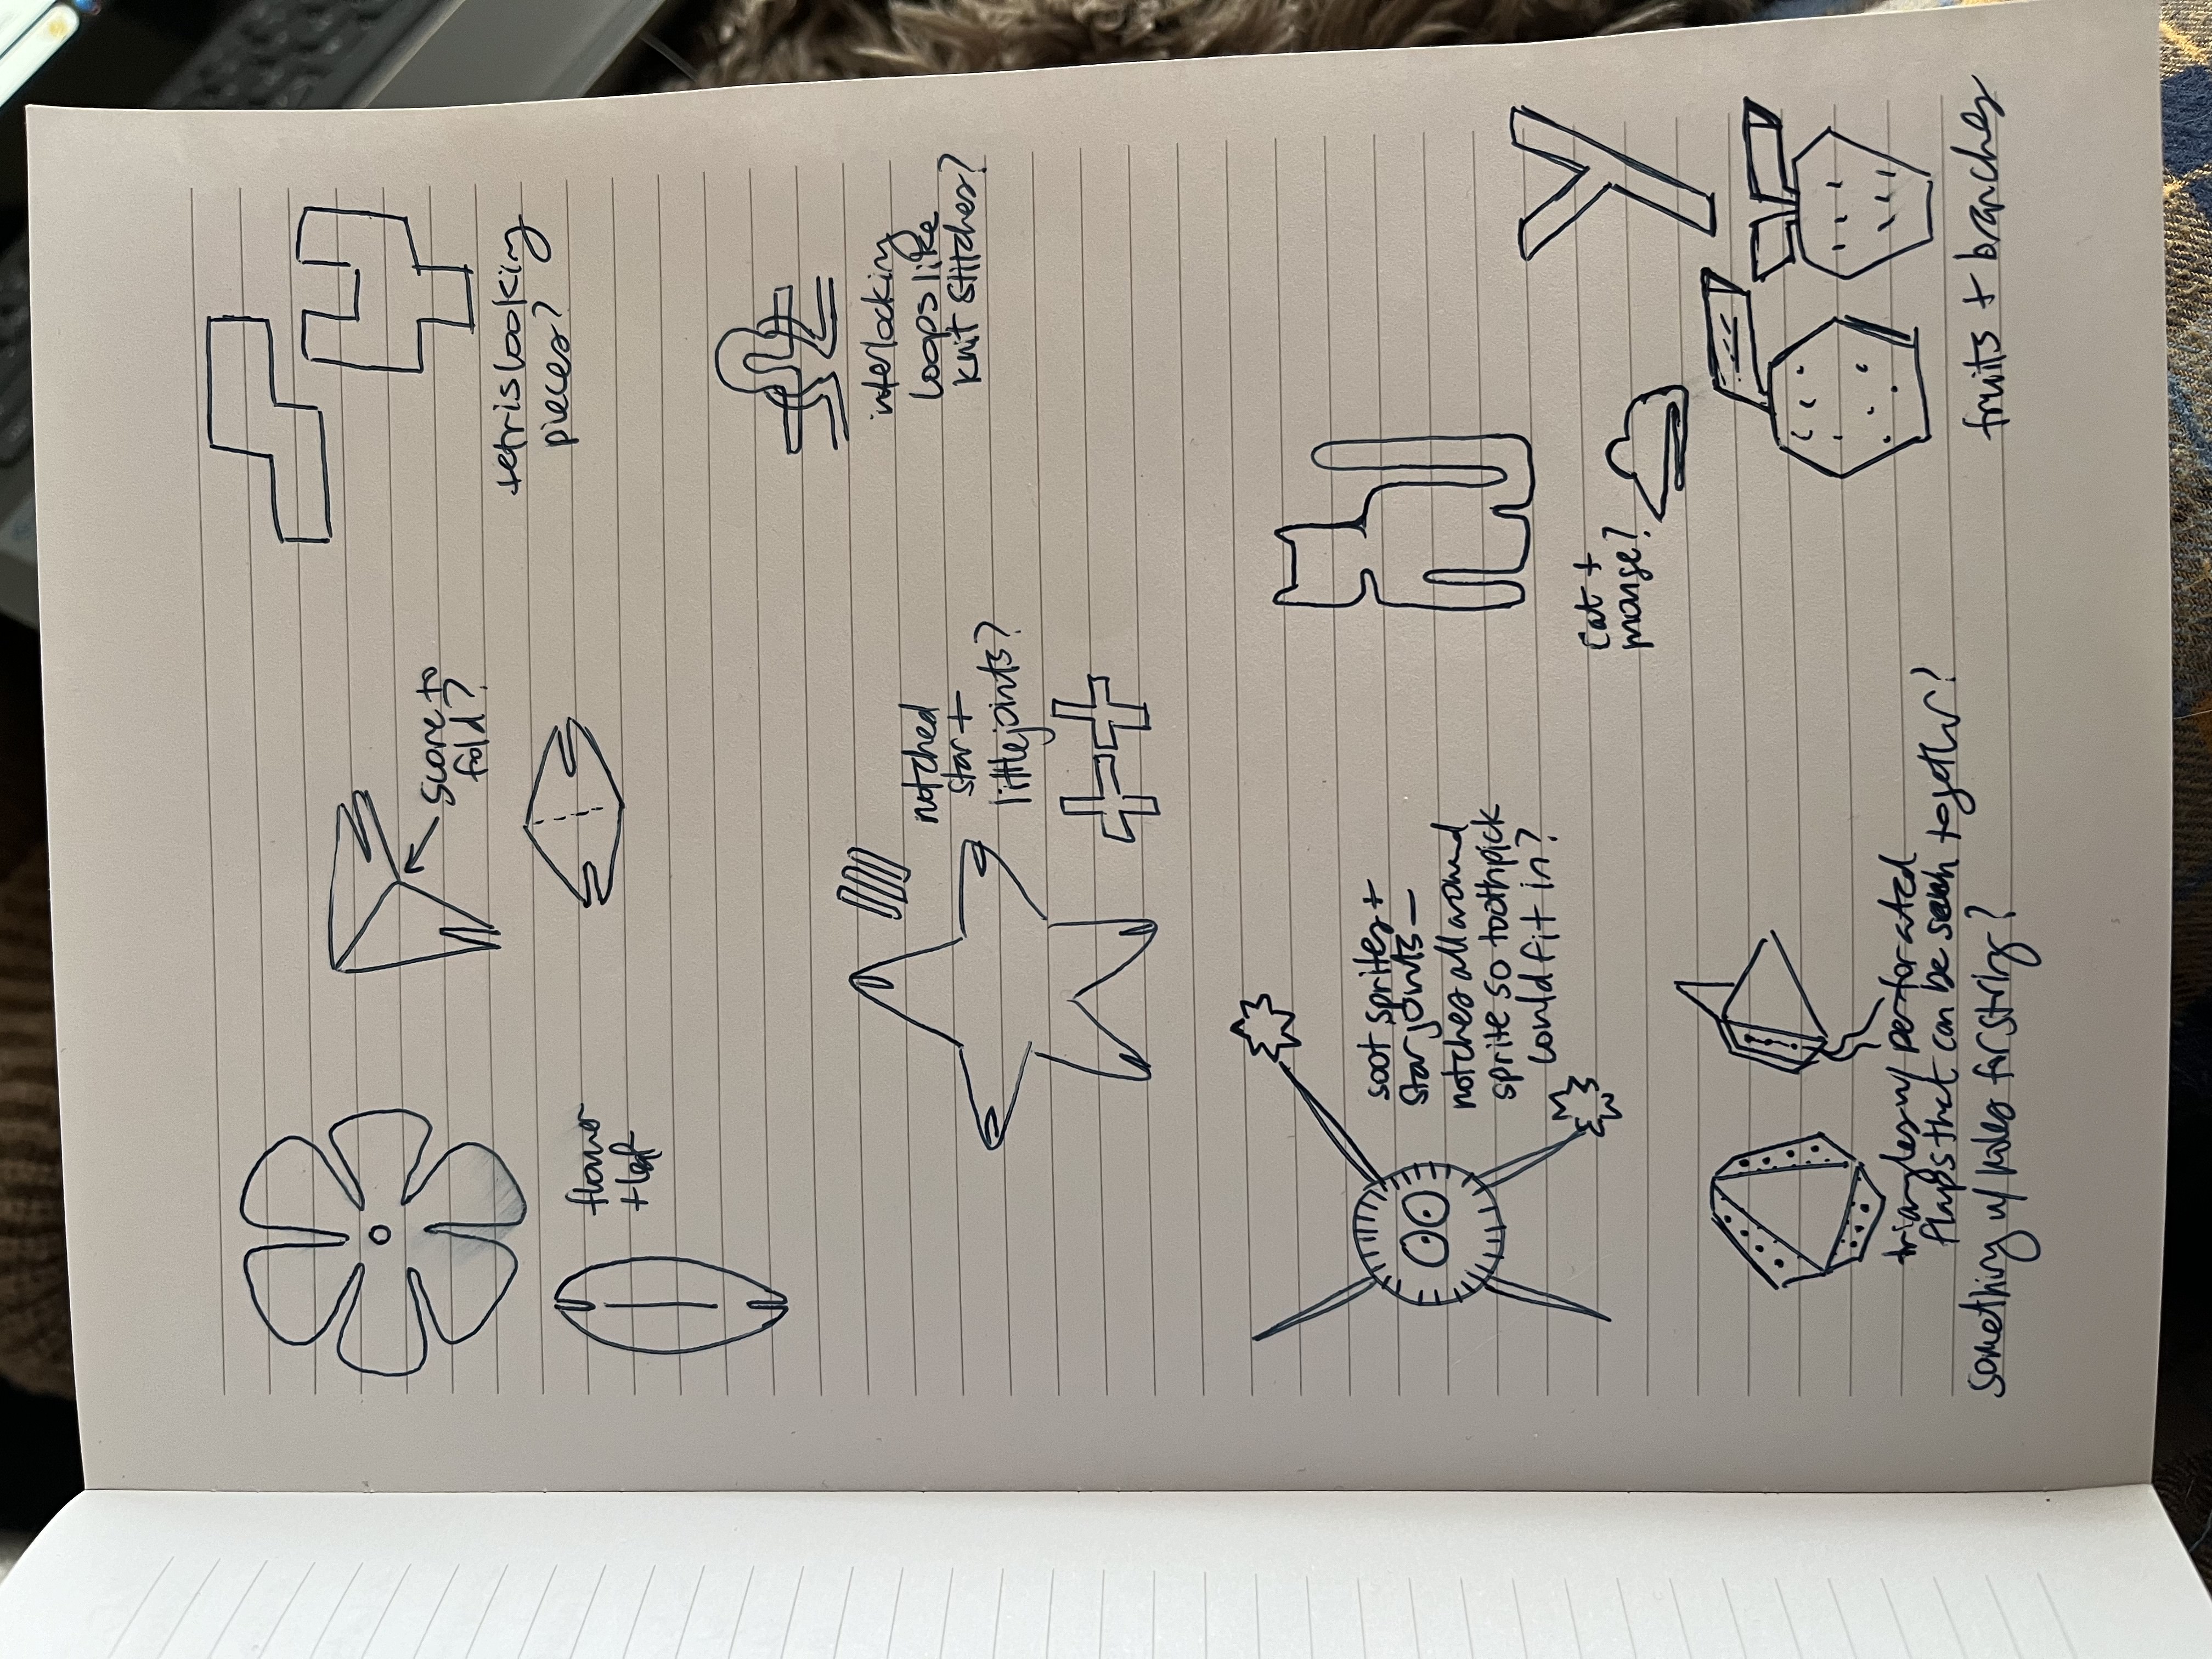 score to
fold?
tetris looking
pieces?
flower
+ leaf
interlocking
loops like
knit stitches?
notched
star +
little joints?
soot sprites +
star joints —
notches all around
sprite so toothpick
could fit in?
cat +
mouse?
triangles w/ perforated
flaps that can be together?
something w/ holes for string?
fruits + branches